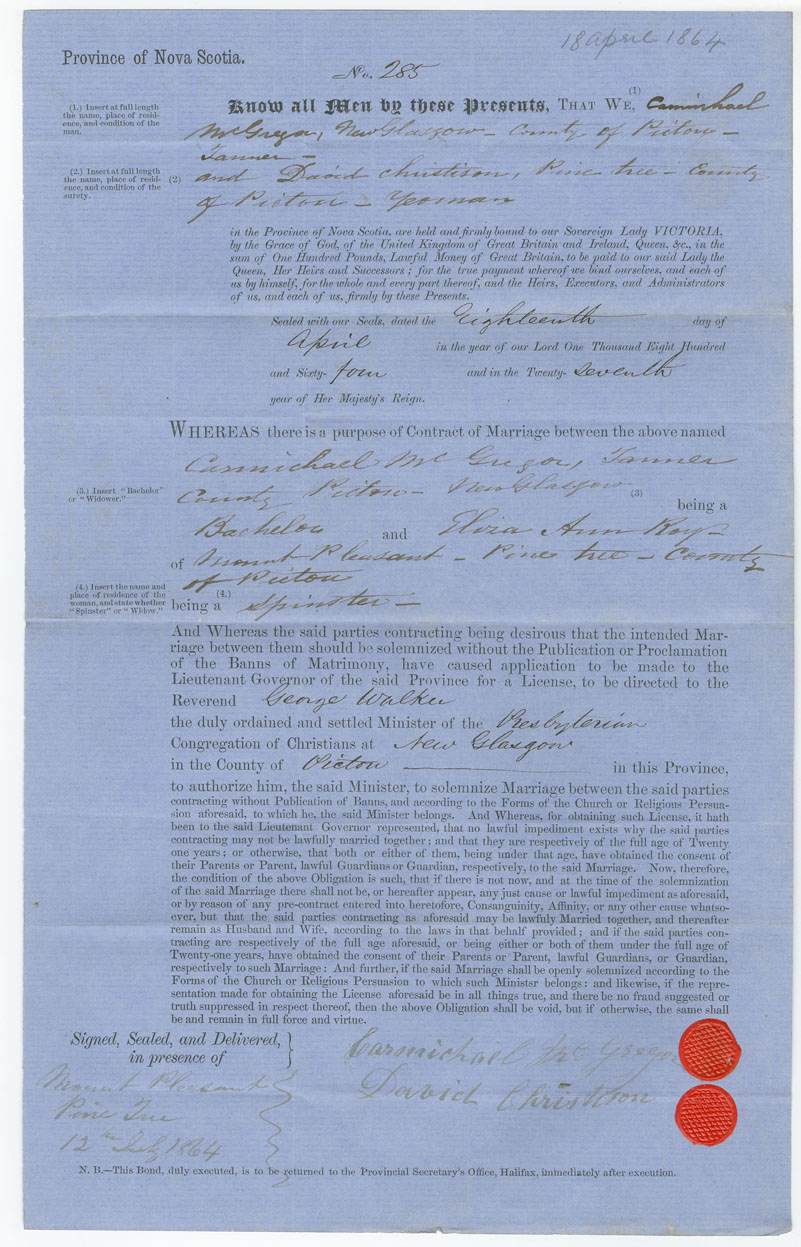 18 April 1864
Province of Nova Scotia.
No. 285
(1.) Insert at full length
the name, place of resid-
ence, and condition of the
man.
(1)
Know all Men by these Presents, THAT WE, Carmichael
McGregor, New Glasgow - County of Pictou -
Tanner -
(2.) Insert at full length
the name, place of resid-
ence, and condition of the
surety.
(2)
and David Christison, Pine tree - County
of Pictou - Yeoman
in the Province of Nova Scotia, are held and firmly bound to our Sovereign Lady VICTORIA,
by the Grace of God, of the United Kingdom of Great Britain and Ireland, Queen, &c., in the
sum of One Hundred Pounds, Lawful Money of Great Britain, to be paid to our said Lady the
Queen, Her Heirs and Successors; for the true payment whereof we bind ourselves, and each of
us by himself, for the whole and every part thereof, and the Heirs, Executors, and Administrators
of us, and each of us, firmly by these Presents.
Sealed with our Seals, dated the Eighteenth day of
April in the year of our Lord One Thousand Eight Hundred
and Sixty- four and in the Twenty- seventh
year of Her Majesty's Reign.
WHEREAS there is a purpose of Contract of Marriage between the above named
Carmichael McGregor, Tanner
(3.) Insert "Bachelor"
or "Widower."
County Pictou - New Glasgow (3)
being a
Bachelor and Eliza Ann Roy -
of Mount Pleasant - Pine tree - County
of Pictou
(4.) Insert the name and
place of residence of the
woman, and state whether
"Spinster" or "Widow."
(4.)
being a Spinster -
And Whereas the said parties contracting being desirous that the intended Mar-
riage between them should be solemnized without the Publication or Proclamation
of the Banns of Matrimony, have caused application to be made to the
Lieutenant Governor of the said Province for a License, to be directed to the
Reverend George Walker
the duly ordained and settled Minister of the Presbyterian
Congregation of Christians at New Glasgow
in the County of Pictou in this Province,
to authorize him, the said Minister, to solemnize Marriage between the said parties
contracting without Publication of Banns, and according to the Forms of the Church or Religious Persua-
sion aforesaid, to which he, the said Minister belongs. And Whereas, for obtaining such License, it hath
been to the said Lieutenant Governor represented, that no lawful impediment exists why the said parties
contracting may not be lawfully married together; and that they are respectively of the full age of Twenty
one years; or otherwise, that both or either of them, being under that age, have obtained the consent of
their Parents or Parent, lawful Guardians or Guardian, respectively, to the said Marriage. Now, therefore,
the condition of the above Obligation is such, that if there is not now, and at the time of the solemnization
of the said Marriage there shall not be, or hereafter appear, any just cause or lawful impediment as aforesaid,
or by reason of any pre-contract entered into heretofore, Consanguinity, Affinity, or any other cause whatso-
ever, but that the said parties contracting as aforesaid may be lawfuly Married together, and thereafter
remain as Husband and Wife, according to the laws in that behalf provided; and if the said parties con-
tracting are respectively of the full age aforesaid, or being either or both of them under the full age of
Twenty-one years, have obtained the consent of their Parents or Parent, lawful Guardians, or Guardian,
respectively to such Marriage: And further, if the said Marriage shall be openly solemnized according to the
Forms of the Church or Religious Persuasion to which such Ministsr belongs: and likewise, if the repre-
sentation made for obtaining the License aforesaid be in all things true, and there be no fraud suggested or
truth suppressed in respect thereof, then the above Obligation shall be void, but if otherwise, the same shall
be and remain in full force and virtue.
Signed, Sealed, and Delivered,
in presence of
Carmichael McGregor
David Christison
Mount Pleasant
Pine Tree
12th July 1864
N. B.—This Bond, duly executed, is to be returned to the Provincial Secretary's Office, Halifax, immediately after execution.